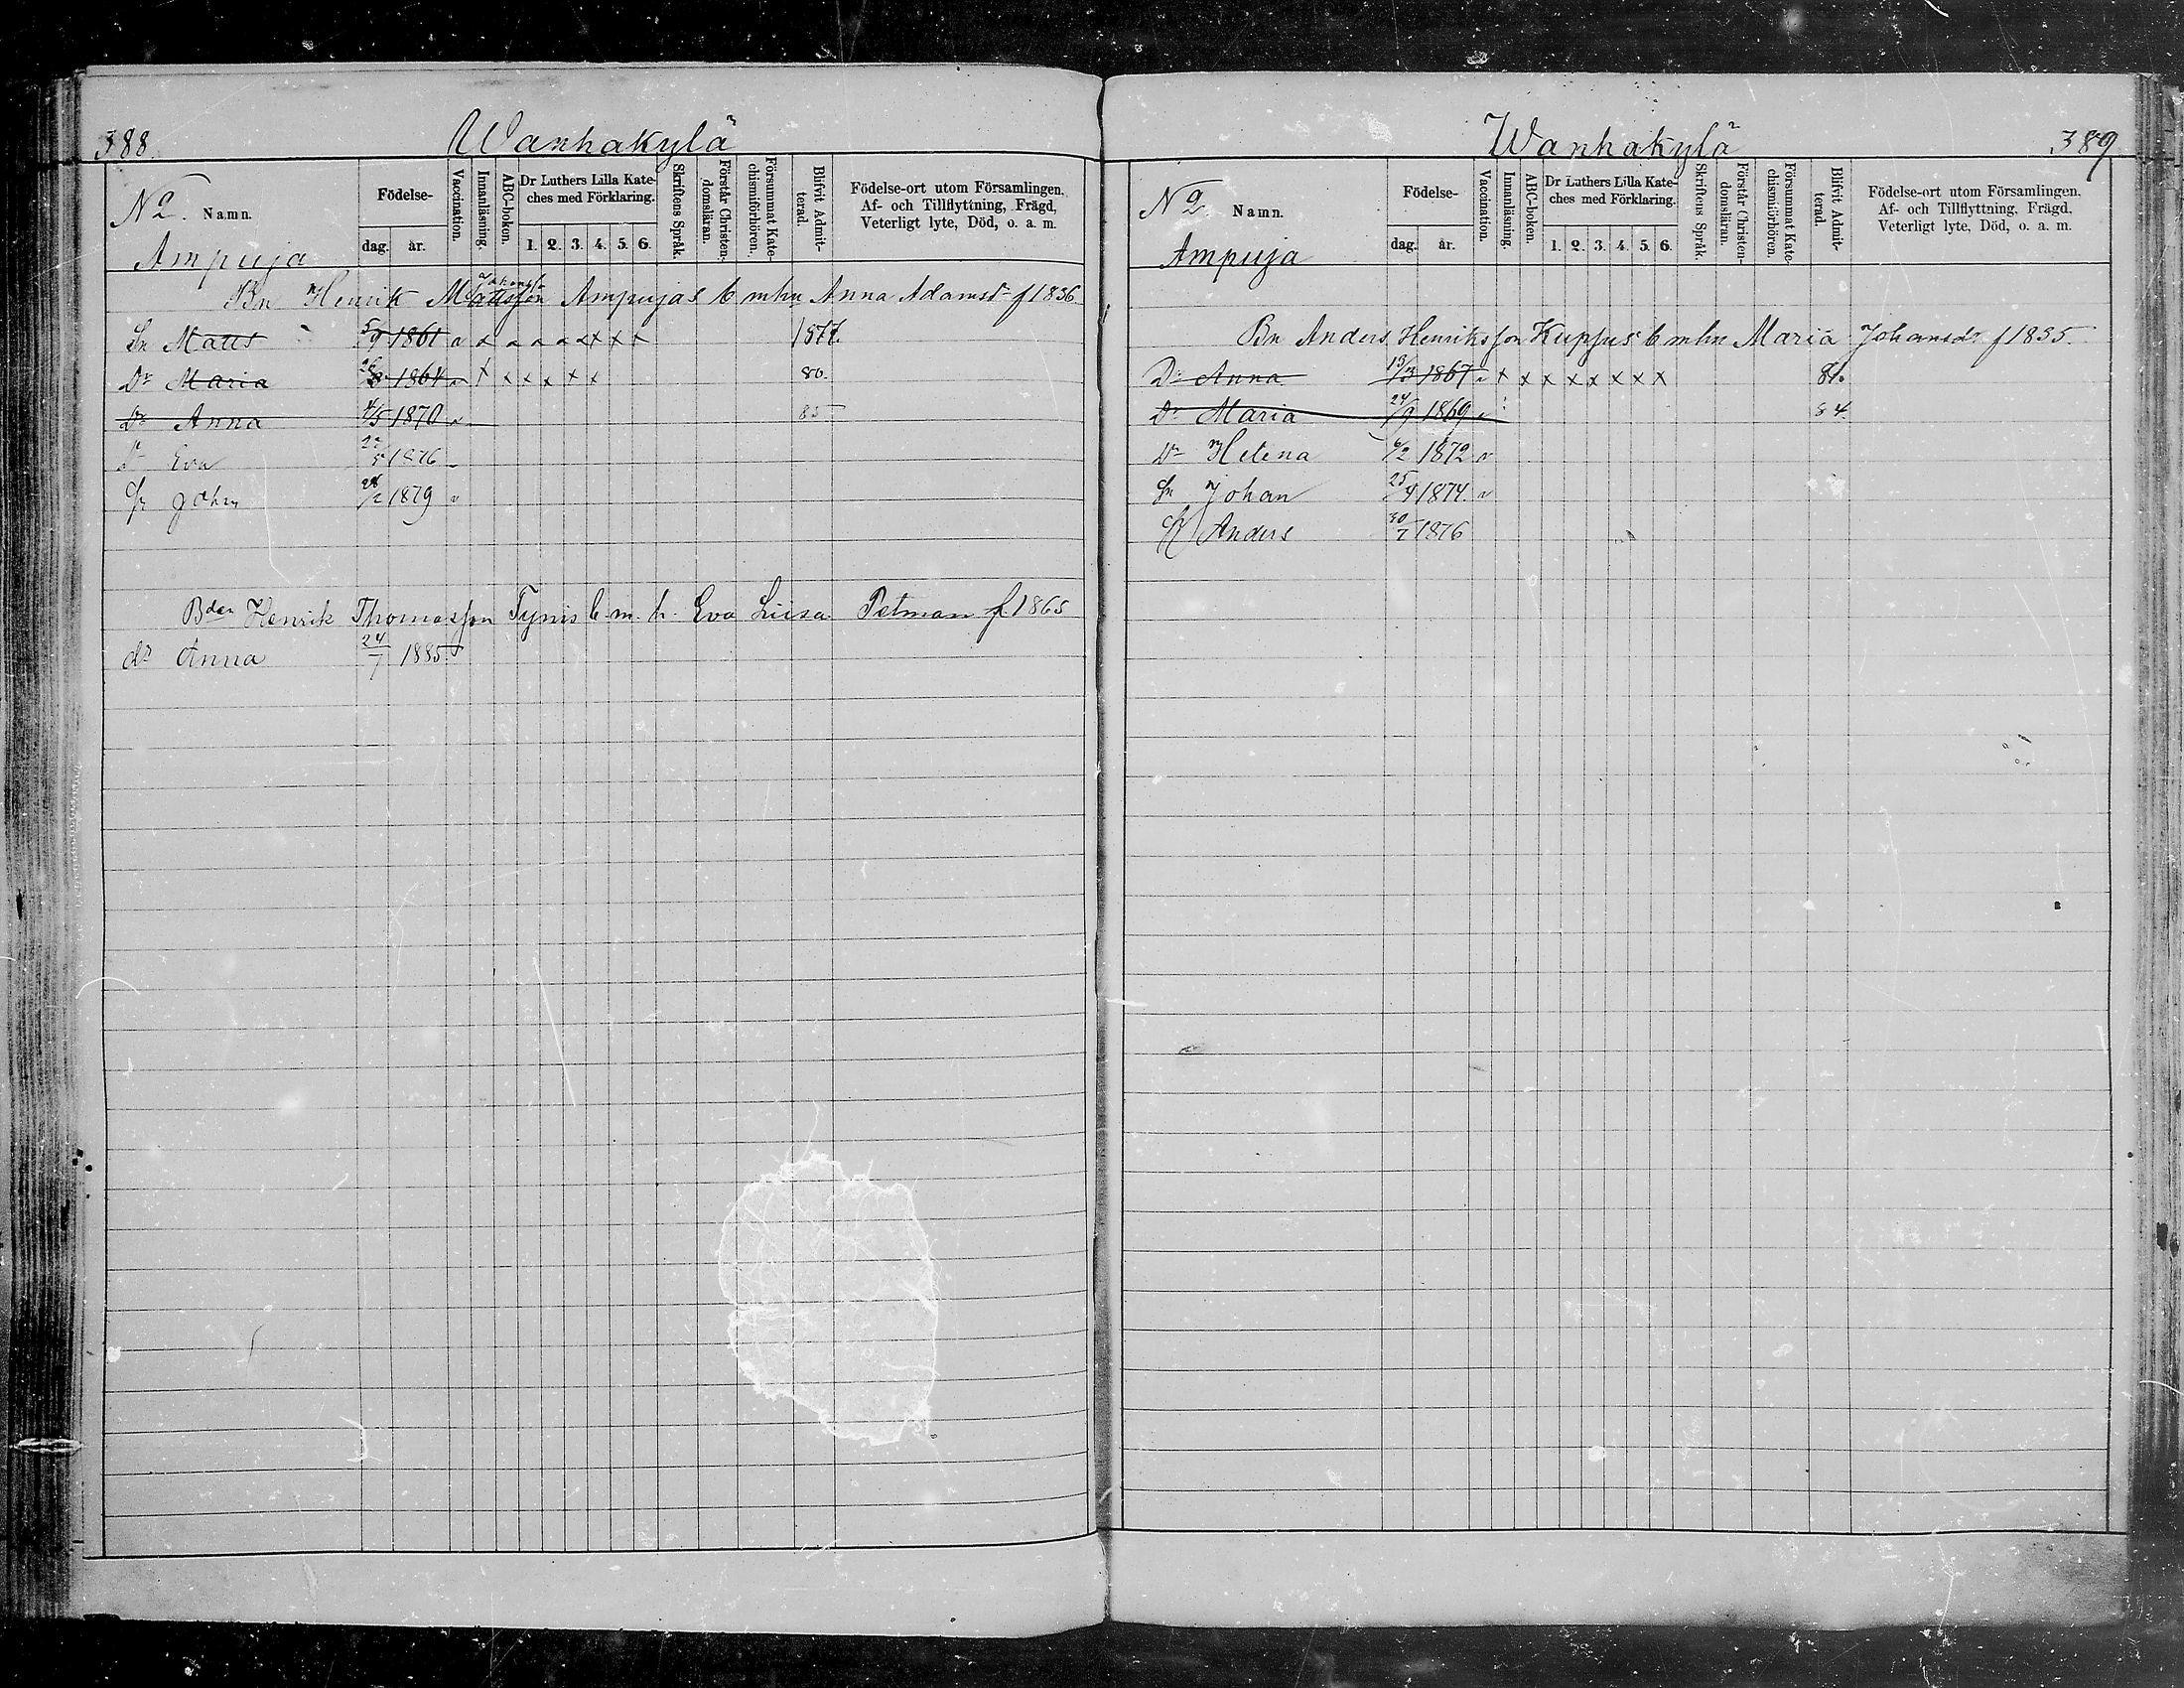 388.
Wanhakylä
N 2. Namn.
Födelse-
dag. år.
Vaccination.
Innanläsning.
ABC-boken.
Dr Luthers Lilla Kate-
ches med Förklaring.
1. 2. 3. 4. 5. 6.
Skriftens Språk.
Förstår Christen-
domsläran.
Försummat Kate-
chismiförhören.
Blifvit Admit-
terad.
Födelse-ort utom Församlingen.
Af- och Tillflyttning, Frägd,
Veterligt lyte, Död, o. a. m.
Ampuja
Bn Henrik Mattsson Ampujas b mhu Anna Adamsdr f 1836.
Sn Matts 5/9 1861 1877.
Dr Maria 1864 x x x x x x 80.
Dr Anna 4/5 1870 85
Dr Eva 22/5 1876
Sn Johan 28/2 1879
Bden Henrik Thomasson Tynis b. m. h. Eva Liisa Petman f. 1865
dr Anna 24/7 1885.
Wanhakylä
389
N 2. Namn.
Födelse-
dag. år.
Vaccination.
Innanläsning.
ABC-boken.
Dr Luthers Lilla Kate-
ches med Förklaring.
1. 2. 3. 4. 5. 6.
Skriftens Språk.
Förstår Christen-
domsläran.
Försummat Kate-
chismiförhören.
Blifvit Admit-
terad.
Födelse-ort utom Församlingen.
Af- och Tillflyttning, Frägd.
Veterligt lyte, Död, o. a. m.
Ampuja
Bn Anders Henriksson Kuppus b mhu Maria Johansdr f 1835.
Dr Anna 13/3 1867 x x x x x x x x 81.
Dr Maria 24/9 1869 84.
Dr Helena 6/2 1872
Sn Johan 25/9 1874
Sn Anders 30/7 1876